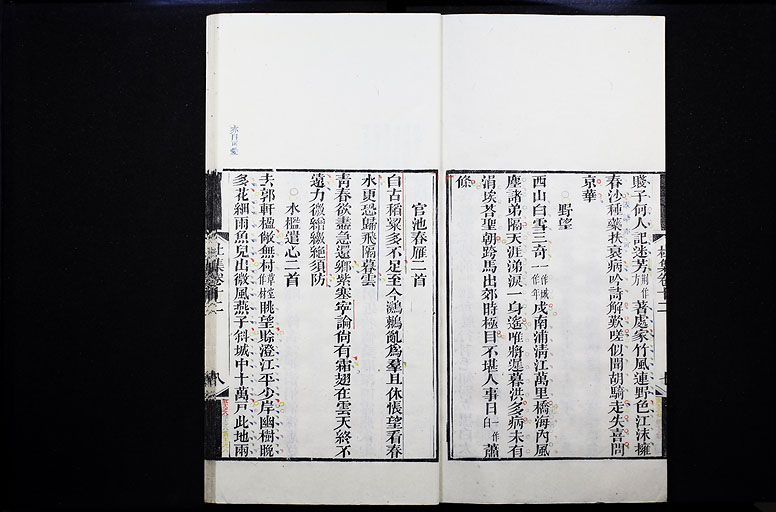 賤子何人記迷芳荆作方著處家竹風連野色江沫擁
春沙種藥扶衰病吟詩解歎嗟似聞胡騎走失喜問
京華
野望
西山白雪三奇一作城一作年戍南浦清江萬里橋海內風
塵諸弟隔天涯涕淚一身遙唯將遲暮供多病未有
涓埃荅聖朝跨馬出郊時極目不堪人事日一作白蕭
條
官池春雁二首
自古稻粱多不足至今鸂鶒亂爲羣且休悵望看春
水更恐歸飛隔暮雲
青春欲盡急還鄉紫塞寧論尙有霜翅在雲天終不
遠力微繒繳絶須防
水檻遣心二首
去郭軒楹敞無村草堂作材眺望賒澄江平少岸幽樹晚
多花細雨魚兒出微風燕子斜城中十萬戸此地兩
杜集卷十二
八